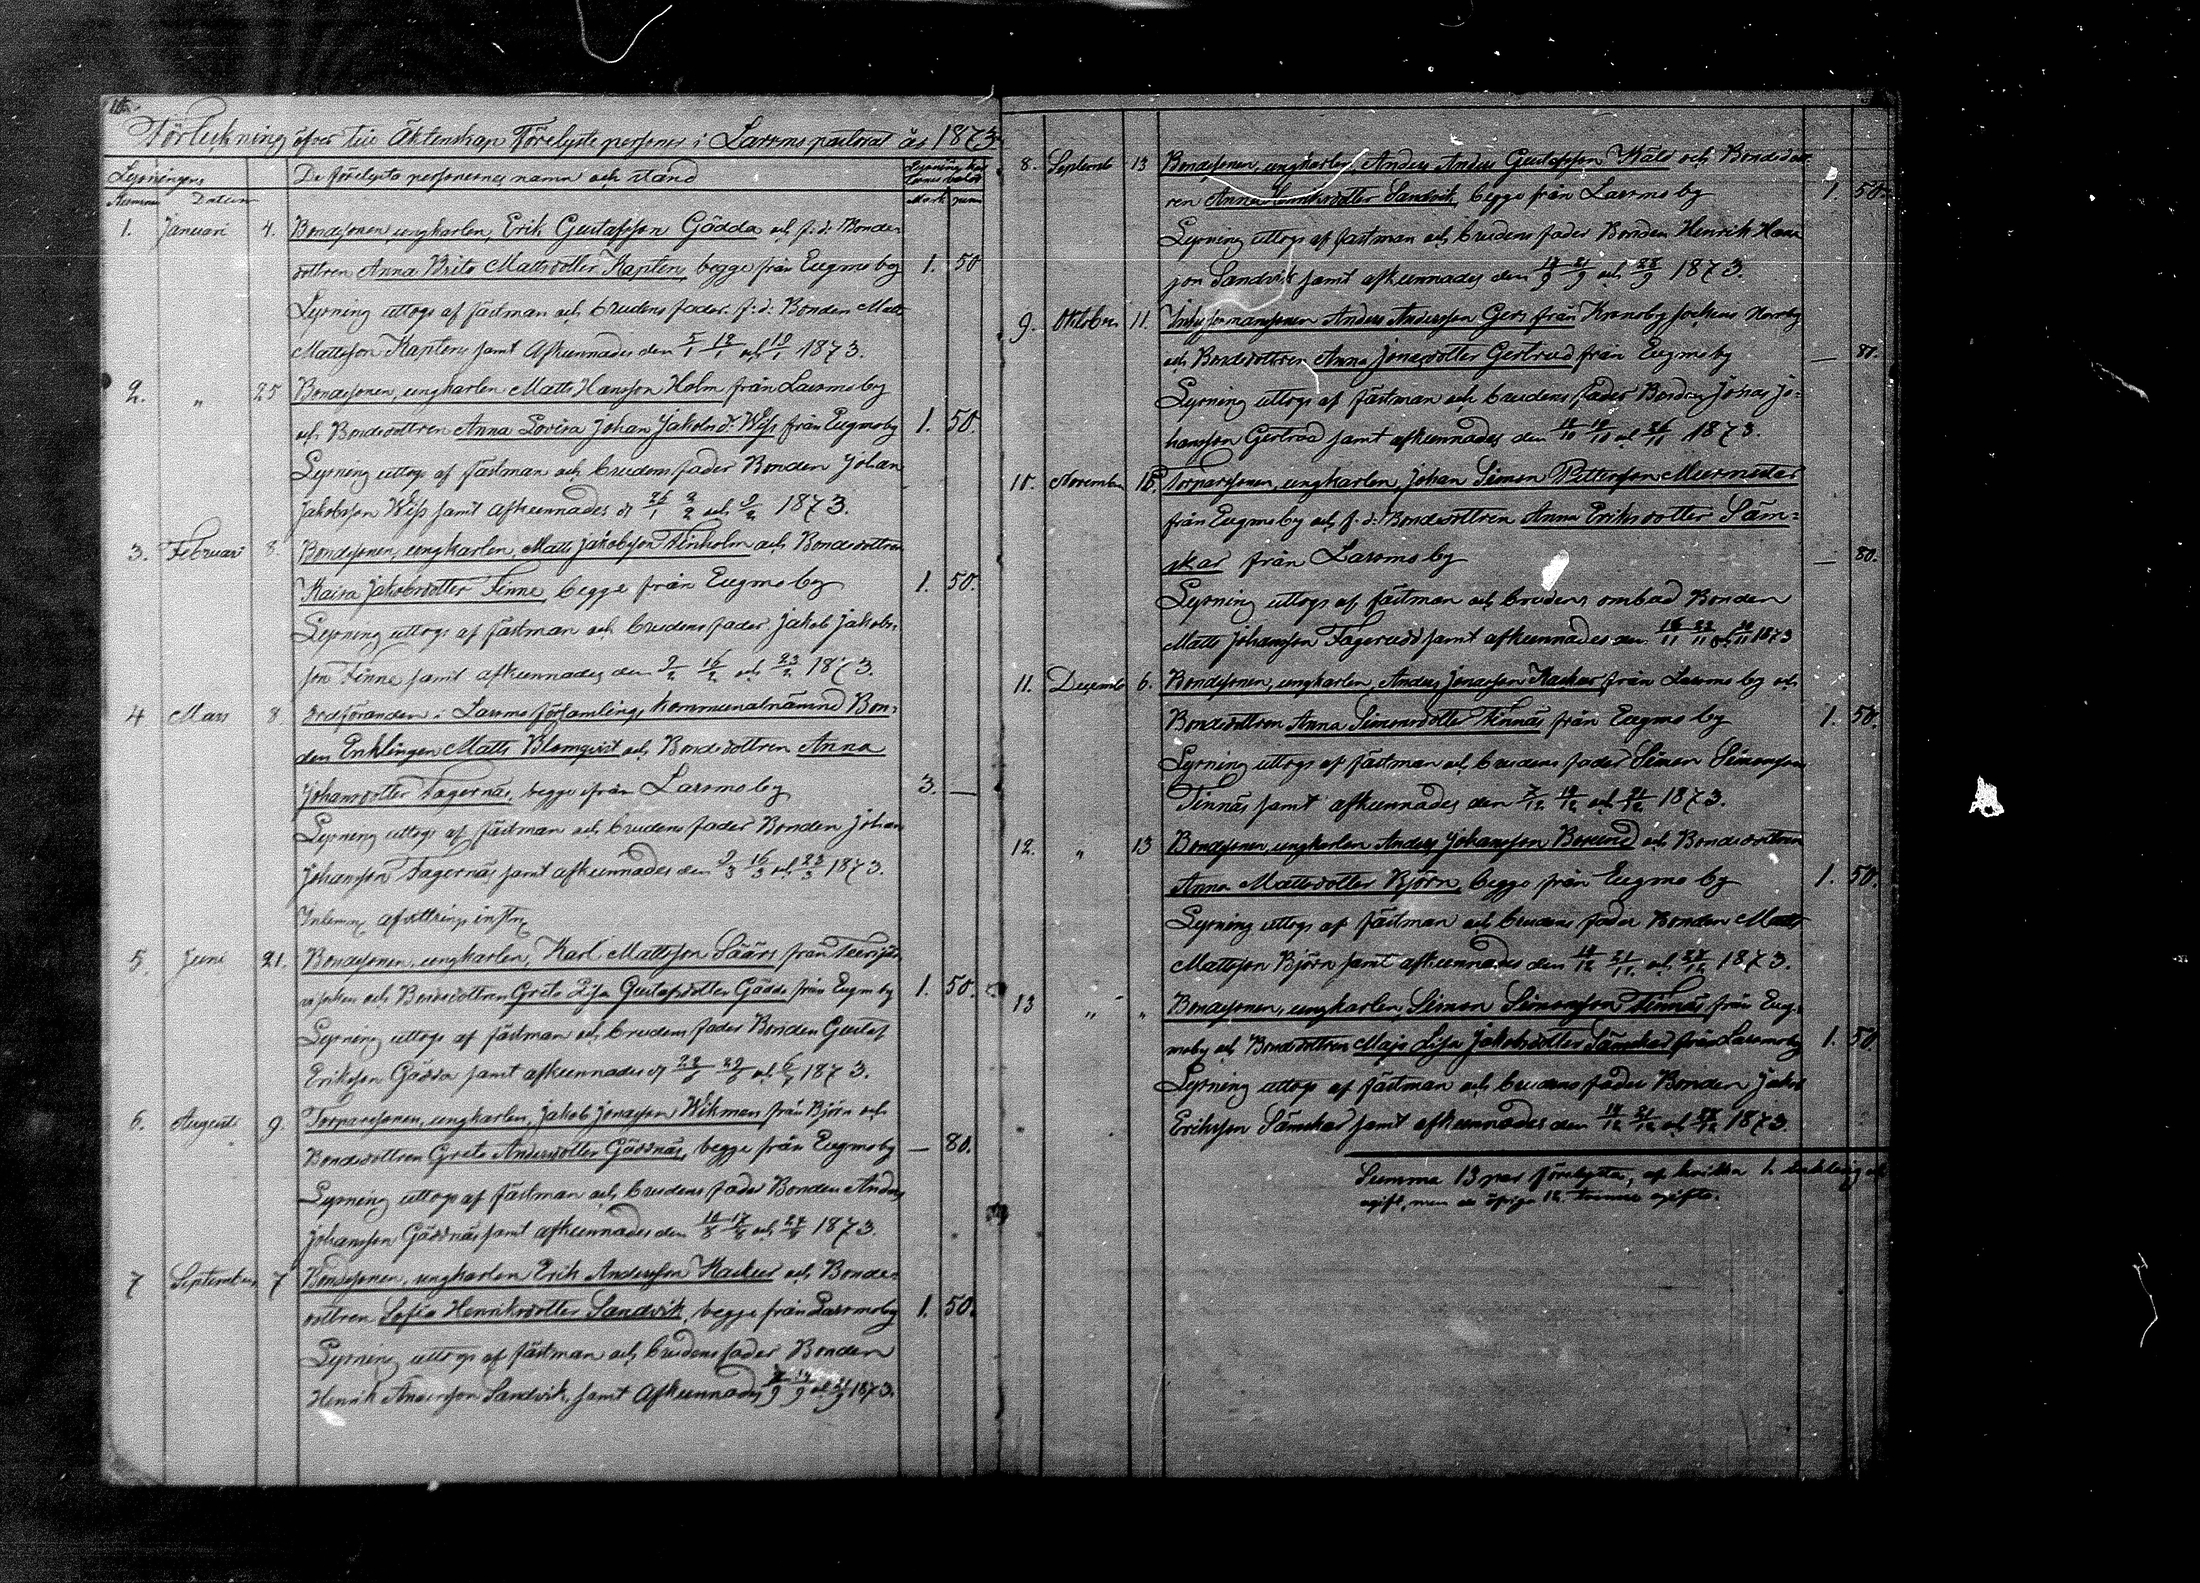 Förteckning öfver till Äktenskap Förelyste personer i Larsmo pastorat år 1873
Lysningens
De förelysta personernes namn och stånd
Nummer Datum
Mark penni
1. Januari 4. Bondesonen, ungkarlen, Erik Gustafsson Gädda och f. d. Bonde-
dottren Anna Brita Mattsdotter Kaptens, begge från Eugmo by 1. 50
Lysning uttogs af fästman och brudens fader f. d. Bonden Matts
Mattsson Kaptens samt Afkunnades den 5/1 12/1 och 19/1 1873.
2. " 25 Bondesonen, ungkarlen Matts Hansson Holm från Larsmo by
och Bondedottren Anna Lovisa Johan Jakobsd. Wiss från Eugmo by 1. 50.
Lysning uttogs af fästman och brudens fader Bonden Johan
Jakobsson Wiss samt afkunnades d 26/1 2/2 och 9/2 1873.
3. Februari 8. Bondesonen, ungkarlen, Matts Jakobsson Finholm och Bondedottren
Kaisa Jakobsdotter Finne, begge från Eugmo by 1. 50.
Lysning uttogs af fästman och brudens fader Jakob Jakobs-
son Finne samt afkunnades den 9/2 16/2 och 23/2 1873.
4 Mars 8. Ordföranden i Larsmo församlings kommunalnämnd Bon-
den Enklingen Matts Blomqvist och Bondedottren Anna
Johansdotter Fagernäs, begge från Larsmo by 3. —
Lysning uttogs af fästman och brudens fader Bonden Johan
Johansson Fagernäs samt afkunnades den 9/3 16/3 och 23/3 1873.
5. Juni 21. Bondesonen, ungkarlen, Karl Mattsson Säärs från
socken och Bondedottren Greta Lisa Gustafsdotter Gädda från Eugmo by 1. 50.
Lysning uttogs af fästman och brudens fader Bonden Gustaf
Eriksson Gädda samt afkunnades d 22/6 29/6 och 6/7 1873.
6. Augusti 9. Torparesonen, ungkarlen, Jakob Jonasson Wikman från Björn och
Bondedottren Greta Andersdotter Gäddnäs, begge från Eugmo by — 80.
Lysning uttogs af fästman och brudens fader Bonden Anders
Johansson Gäddnäs samt afkunnades den 10/8 17/8 och 24/8 1873.
7 September 7 Bondesonen, ungkarlen Erik Andersson Kackur och Bonde-
dottren Sofia Henriksdotter Sandvik, begge från Larsmo by 1. 50.
Lysning uttogs af fästman och brudens fader Bonden
Henrik Andersson Sandvik, samt Afkunnades 7/9 14/9 och 21/9 1873.
8. Septemb 13 Bondesonen, ungkarlen, Anders Anders Gustafsson Wäst och Bondedott
ren Anna Henriksdotter Sandvik, begge från Larsmo by 1. 50.
Lysning uttogs af fästman och brudens fader Bonden Henrik Hans
son Sandvik samt afkunnades den 14/9 21/9 och 28/9 1873.
9. Oktober 11. Anders Andersson Gers från Kronoby sockens Norrby
och Bondedottren Anna Jonasdotter Gertrud från Eugmo by — 80.
Lysning uttogs af fästman och brudens fader Bonden Jonas Jo-
hansson Gertrud samt afkunnades den 12/10 19/10 och 26/10 1873.
10. November 15. Torparesonen, ungkarlen, Johan Simon Pettersson Murmester
från Eugmo by och f. d. Bondedottren Anna Eriksdotter Säm-
skar från Larsmo by — 80.
Lysning uttogs af fästman och brudens ombud Bonden
Matts Johansson Fagerudd samt afkunnades den 16/11 23/11 och 30/11 1873
11. Decemb 6. Bondesonen, ungkarlen, Anders Jonasson Kackur från Larsmo by och
Bondedottren Anna Simonsdotter Finnäs från Eugmo by 1. 50.
Lysning uttogs af fästman och brudens fader Simon Simonsson
Finnäs samt afkunnades den 7/12 14/12 och 21/12 1873.
12. " 13 Bondesonen, ungkarlen Anders Johansson Bosund och Bondedottren
Anna Mattsdotter Björn, begge från Eugmo by 1. 50.
Lysning uttogs af fästman och brudens fader Bonden Matts
Mattsson Björn samt afkunnades den 14/12 21/12 och 28/12 1873.
13 " " Bondesonen, ungkarlen, Simon Simonsson Finnäs från Eug-
mo by och Bondedottren Maja Lisa Jakobsdotter Sämskar från Larsmo by 1. 50
Lysning uttogs af fästman och brudens fader Bonden Jakob
Eriksson Sämskar samt afkunnades den 14/12 21/12 och 28/12 1873.
Summa 13 par förelysta, af hvilka 1 enkling och
ogift, men de öfriga 12 tvenne ogifte.